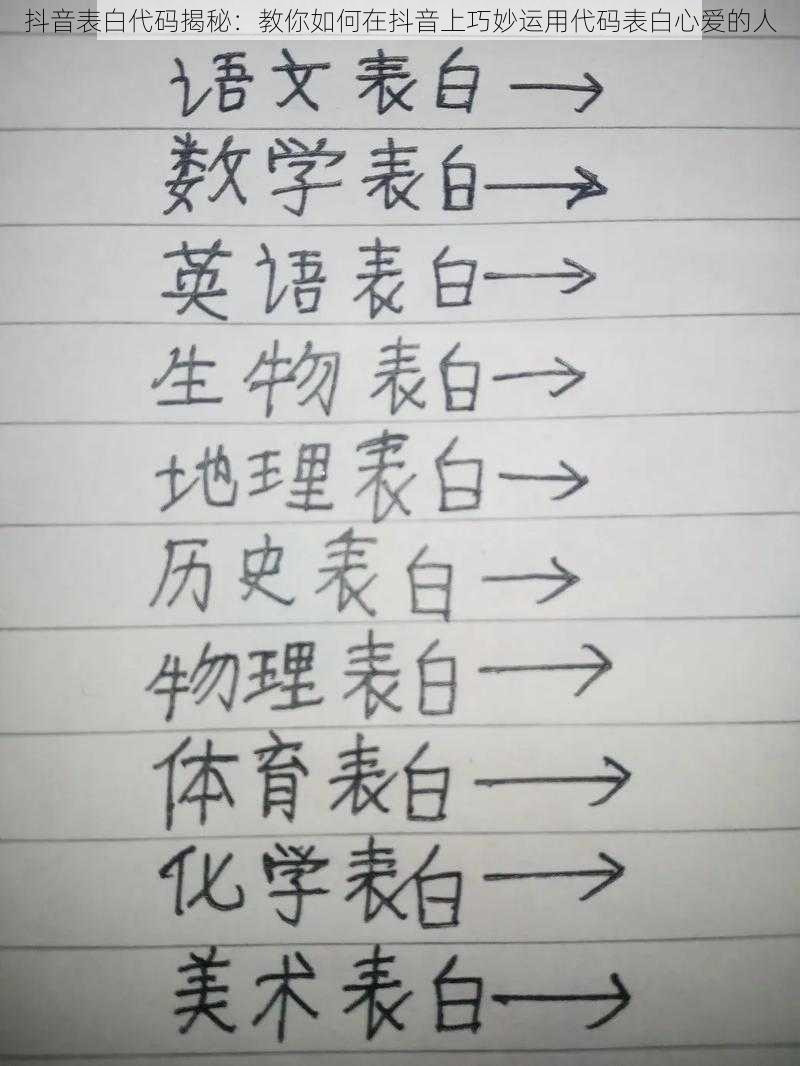 抖音表白代码揭秘：教你如何在抖音上巧妙运用代码表白心爱的人
语文表白→
数学表白→
英语表白→
生物表白→
地理表白→
历史表白→
物理表白→
体育表白→
化学表白→
美术表白→